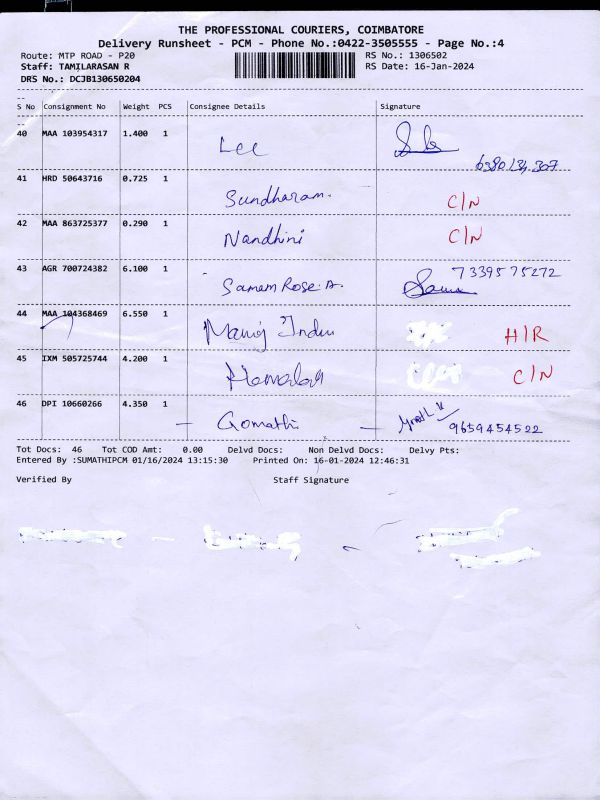 THE PROFESSIONAL COURIERS, COIMBATORE
Delivery Runsheet - PCM - Phone No.:0422-3505555 - Page No.:4
Route: MTP ROAD - P20 RS No.: 1306502
Staff: TAMILARASAN R RS Date: 16-Jan-2024
DRS No.: DCJB130650204
S No Consignment No Weight PCS Consignee Details Signature
40 MAA 103954317 1.400 1 Lee
41 HRD 50643716 0.725 1 Sundharam. C/N
42 MAA 863725377 0.290 1 Nandhini C/N
43 AGR 700724382 6.100 1 Samam Rose.A. 7339575272
44 MAA 104368469 6.550 1 Manoj H/R
45 IXM 505725744 4.200 1 C/N
46 DPI 10660266 4.350 1 - Gomathi - 9659454522
Tot Docs: 46 Tot COD Amt: 0.00 Delvd Docs: Non Delvd Docs: Delvy Pts:
Entered By :SUMATHIPCM 01/16/2024 13:15:30 Printed On: 16-01-2024 12:46:31
Verified By Staff Signature